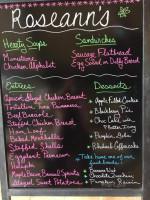 Roseann's
Hearty Soups
Minestrone
Chicken Alphabet
Sandwiches
Sausage Flatbread
Egg Salad on Jalby Bread
Entrées
Apricot Glazed Chicken Breast
Tuna
Beef Brascole
Stuffed Chicken Breast
Ham Loaf
Baked Meatballs
Stuffed Shells
Eggplant Parmesan
Haluski
Maple Bacon Brussel Sprouts
Glazed Sweet Potatoes
Desserts
Apple Filled Cookies
Blackberry Pie
Choc. Cake with
P.Butter Icing
Pumpkin Bites
Rhubarb Coffeecake
Take home one of our
Banana Nut
Chocolate Zucchini
Pumpkin Raisin